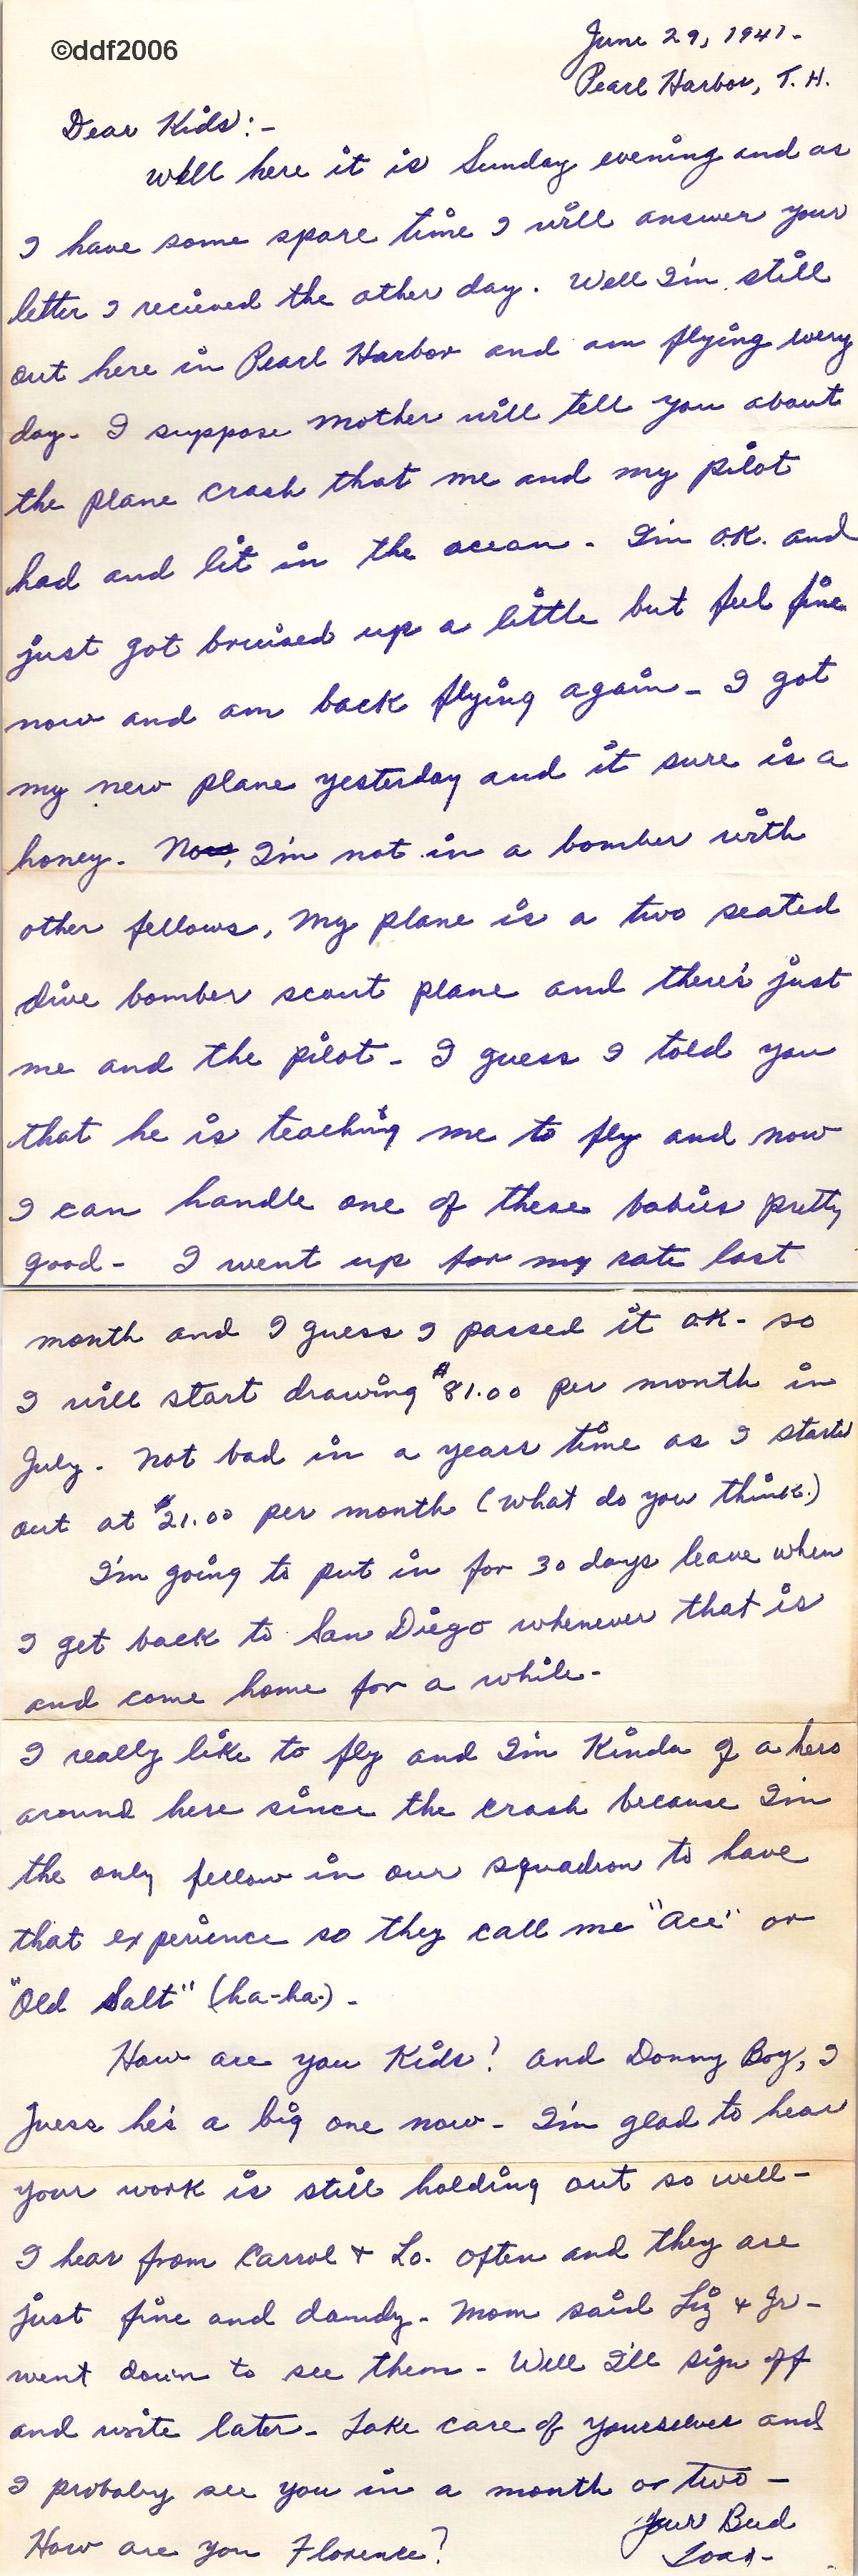 ©ddf2006
June 29, 1941-
Pearl Harbor, T. H.
Dear Kids:-
Well here it is Sunday evening and as
I have some spare time I will answer your
letter I recieved the other day. Well I'm still
out here in Pearl Harbor and am flying every
day- I suppose mother will tell you about
the plane crash that me and my pilot
had and lit in the ocean- I'm O.K. and
just got bruised up a little but feel fine
now and am back flying again- I got
my new plane yesterday and it sure is a
honey. No, I'm not in a bomber with
other fellows, My plane is a two seated
dive bomber scout plane and there's just
me and the pilot- I guess I told you
that he is teaching me to fly and now
I can handle one of these babies pretty
good- I went up for my rate last
month and I guess I passed it O.K- so
I will start drawing $81.00 per month in
July. Not bad in a years time as I started
out at $21.00 per month (what do you think.)
I'm going to put in for 30 days leave when
I get back to San Diego whenever that is
and come home for a while-
I really like to fly and I'm Kinda of a hero
around here since the crash because I'm
the only fellow in our squadron to have
that experience so they call me "Ace" or
"Old Salt" (ha-ha.)-
How are you Kids? And Donny Boy, I
guess he's a big one now- I'm glad to hear
your work is still holding out so well-
I hear from Carrol + Lo. often and they are
just fine and dandy- Mom said Liz + Jr-
went down to see them- Well I'll sign off
and write later- Take care of yourselves and
I probaly see you in a month or two-
Your Bud
How are you Florence?